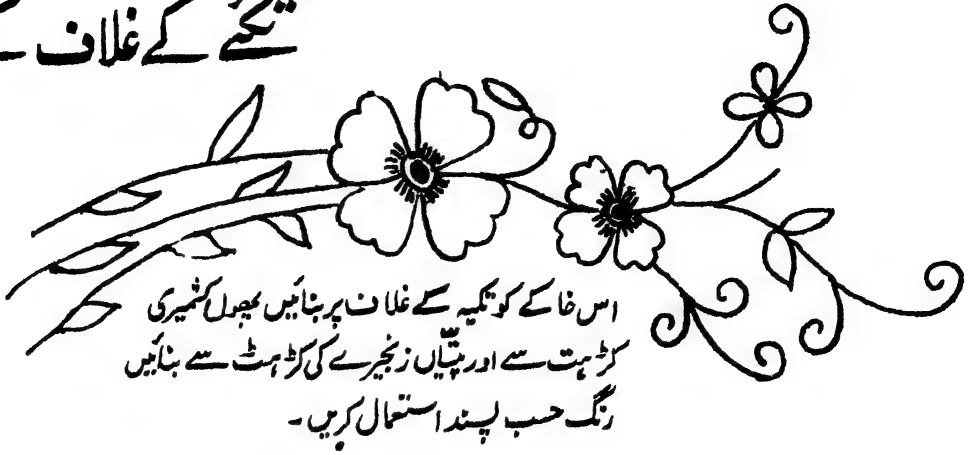 تکئے کے غلاف
اس خاکے کو تکیہ کے غلاف پر بنائیں پھول کشمیری
کڑہت سے اور پتیاں زنجیرے کی کڑہٹ سے بنائیں
رنگ حسب پسند استعمال کریں ۔